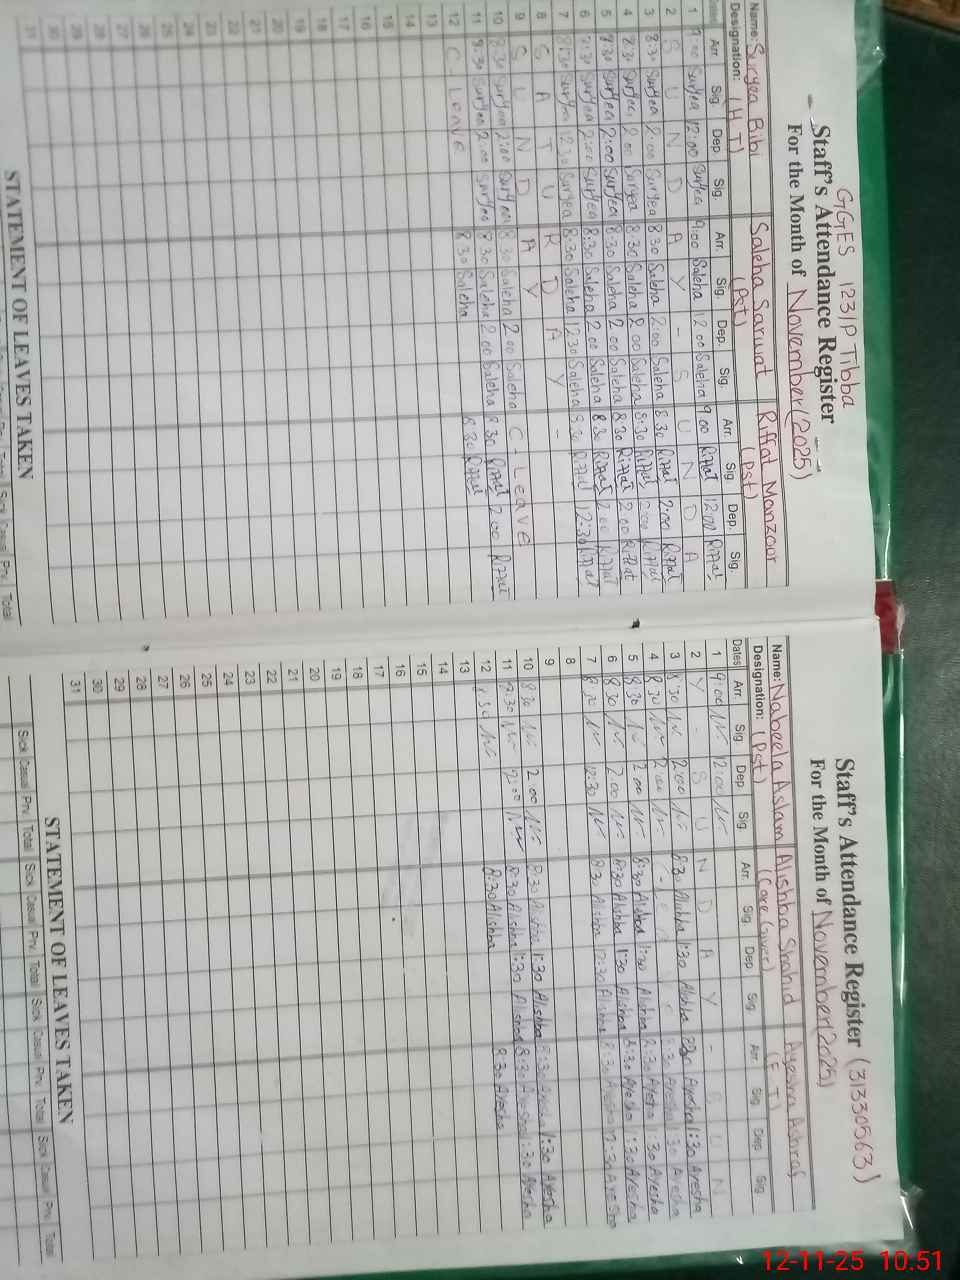 GGES 123/P Tibba
Staff's Attendance Register
For the Month of November(2025)
Name: Suryea Bibi Saleha Sarwat Riffat Manzoor
Designation: (H T) (Pst) (Pst)
Arr. Sig. Dep Sig. Arr. Sig. Dep. Sig. Arr. Sig. Dep. Sig.
1 9:00 Suryea 12:00 Suryea 9:00 Saleha 12:00 Saleha 9:00 Riffat 12:00 Riffat
2 S U N D A Y - S U N D A
3 8:30 Suryea 2:00 Suryea 8:30 Saleha 2:00 Saleha 8:30 Riffat 2:00 Riffat
4 8:30 Suryea 2:00 Suryea 8:30 Saleha 2:00 Saleha 8:30 Riffat 2:00 Riffat
5 8:30 Suryea 2:00 Suryea 8:30 Saleha 2:00 Saleha 8:30 Riffat 2:00 Riffat
6 8:30 Suryea 2:00 Suryea 8:30 Saleha 2:00 Saleha 8:30 Riffat 2:00 Riffat
7 8:30 Suryea 12:30 Suryea 8:30 Saleha 12:30 Saleha 8:30 Riffat 12:30 Riffat
8 S A T U R D A Y -
9 S U N D A Y
10 8:30 Suryea 2:00 Suryea 8:30 Saleha 2:00 Saleha C-Leave
11 8:30 Suryea 2:00 Suryea 8:30 Saleha 2:00 Saleha 8:30 Riffat 2:00 Riffat
12 C-Leave 8:30 Saleha 8:30 Riffat
13
14
15
16
17
18
19
20
21
22
23
24
25
26
27
28
29
30
31
STATEMENT OF LEAVES TAKEN
Sick Casual Prv. Total
Staff's Attendance Register (31330563)
For the Month of November(2025)
Name: Nabeela Aslam Alishba Shahid Ayesha Ashraf
Designation: (Pst) (Care Giver) (E T)
Dates Arr. Sig Dep Sig. Arr. Sig. Dep Sig. Arr. Sig Dep Sig
1 9:00 12:00
2 Y - S U N D A Y - S U N
3 8:30 2:00 8:30 Alishba 1:30 Alishba Ayesha 1:30 Ayesha
4 8:30 2:00 Ayesha 1:30 Ayesha
5 8:30 2:00 8:30 Alishba Alishba 8:30 Ayesha 1:30 Ayesha
6 8:30 2:00 8:30 Alishba 1:30 Alishba 8:30 Ayesha 1:30 Ayesha
7 8:30 12:30 8:30 Alishba Alishba 8:30 Ayesha Ayesha
8
9
10 8:30 2:00 8:30 Alishba 1:30 Alishba 8:30 Ayesha 1:30 Ayesha
11 8:30 2:00 8:30 Alishba 1:30 Alishba 8:30 Ayesha 1:30 Ayesha
12 8:30 Alishba 8:30 Ayesha
13
14
15
16
17
18
19
20
21
22
23
24
25
26
27
28
29
30
31
STATEMENT OF LEAVES TAKEN
Sick Casual Prv. Total Sick Casual Prv. Total Sick Casual Prv. Total
12-11-25 10:51